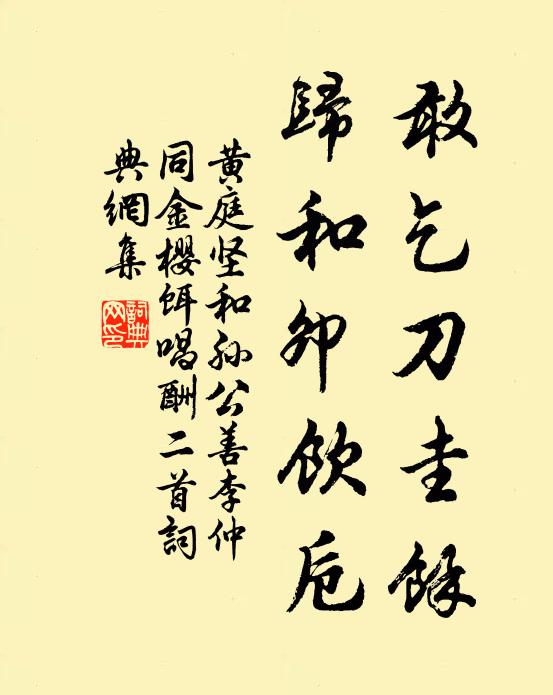 敢乞刀圭餘
歸和卯飲卮
黄庭坚和孙公善李仲
同金櫻餌唱酬二首詞
典網集
詞典
网印